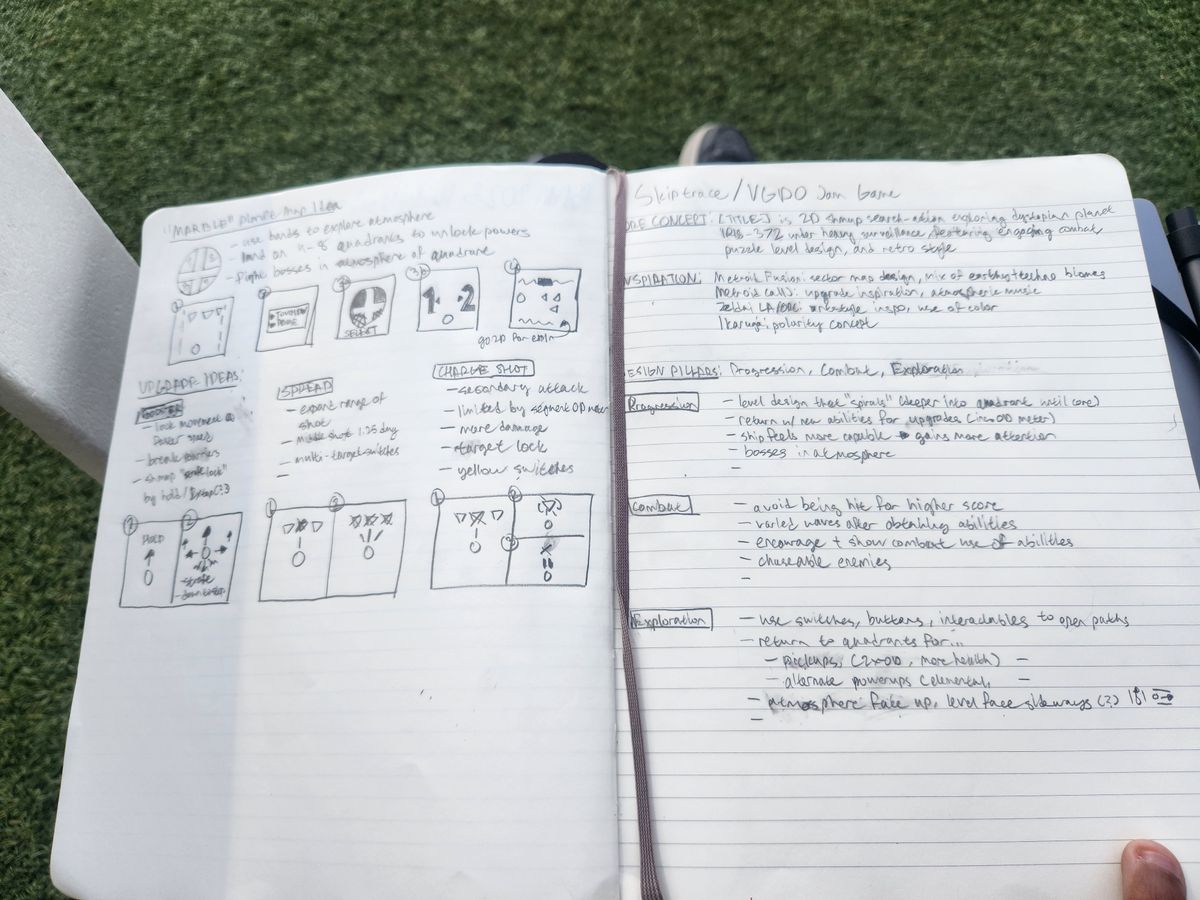 "MARBLE" planet map idea
- use bands to explore atmosphere
- land on 4-8 quadrants to unlock powers
- fight bosses in atmosphere of quadrant
1
2
3
4
SELECT
1 2
go 2D for exploration
UPGRADE IDEAS:
BOOSTER
- lock movement @
- break barriers
- shmup "strafe lock"
by hold/
1
2
HOLD
- strafe
SPREAD
- expand range of
shot
- Middle shot 1.25 dmg
- multi-target switches
-
1
2
CHARGE SHOT
- secondary attack
- limited by segment OD meter
- more damage
- target lock
- yellow switches
1
2
3
Skiptrace/VGDO Jam Game
CORE CONCEPT: [TITLE] is 2D shmup search-action exploring dystopian planet
under heavy surveillance, featuring engaging combat,
puzzle level design, and retro style
INSPIRATION: Metroid Fusion: sector map design, mix of earthy + techno biomes
Metroid (all): upgrade inspiration, atmospheric music
Zelda: artstyle inspo, use of color
Ikaruga: polarity concept
DESIGN PILLARS: Progression, Combat, Exploration
Progression
- level design that "spirals" (deeper into quadrant until core)
- return w/ new abilities for upgrades (inc. OD meter)
- ship feels more capable gains more attention
- bosses in atmosphere
-
Combat
- avoid being hit for higher score
- varied waves after obtaining abilities
- encourage + show combat use of abilities
- chaseable enemies
-
Exploration
- use switches, buttons, interactables to open paths
- return to quadrants for...
- pickups, (2x OD, more health) -
- alternate powerups (elemental, -
- atmosphere face up, level face sideways (?)
-